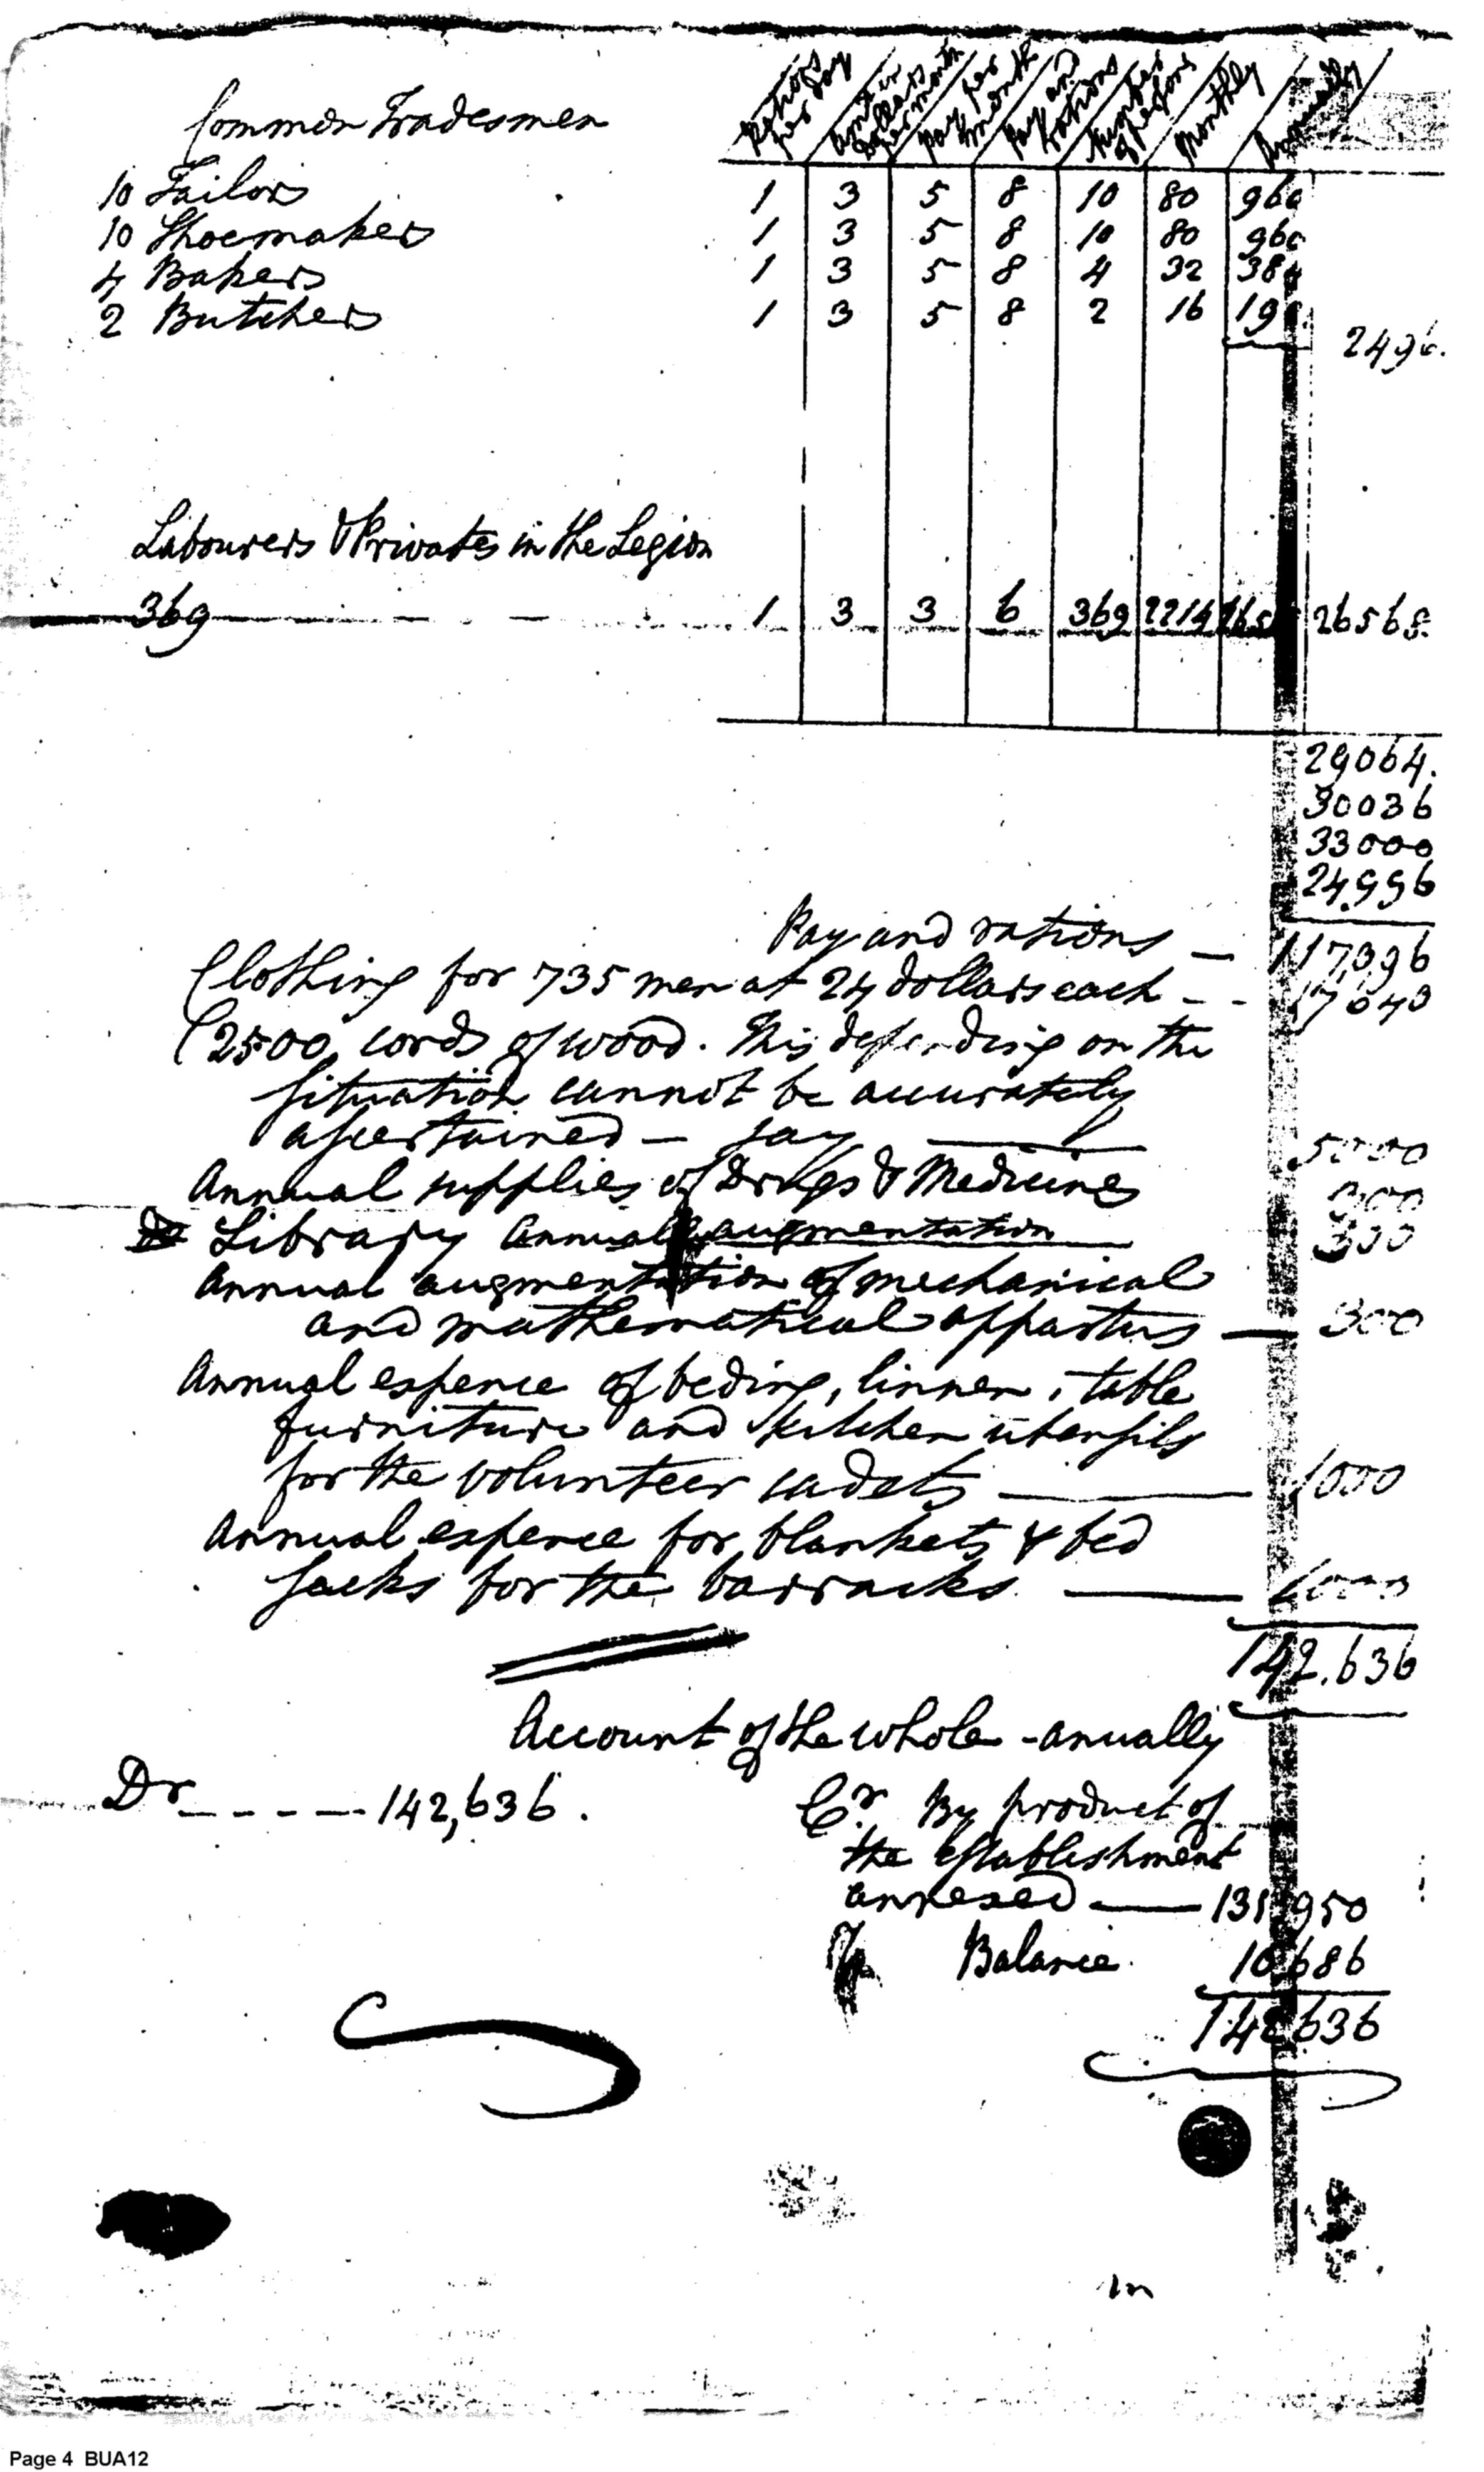 Rations per Day | amt in Dollars per month | Pay per month | Pay and rations | Number of persons | Monthly | Annually
Common Tradesmen
10 Tailors 1 3 5 8 10 80 960
10 Shoemakers 1 3 5 8 10 80 960
4 Bakers 1 3 5 8 4 32 384
2 Butchers 1 3 5 8 2 16 19
2496.
Labourers & Privates in the Legion
369 1 3 3 6 369 2214 265 26568.
29064.
30036
33000
24,996
Pay and rations — 117,096
Clothing for 735 men at 24 dollars each - - 17640
(2500, cords of wood. This depending on the
situation cannot be accurately
ascertained — say 5000
Annual supplies of Drugs & Medicines 300
Library annual augmentation 300
Annual augmentation of mechanical
and mathematical appartus — 300
Annual expence of beding, linnen, table
furniture and kitchen utensils
for the volunteer cadets — 1000
Annual expence for blankets & bed
sacks for the barracks — 1000
142.636
Account of the whole - anually
Dr - - - - - 142,636.
Cr. By product of
the establishment
annexed — 131950
Balance. 10,686
142636
in
Page 4 BUA12